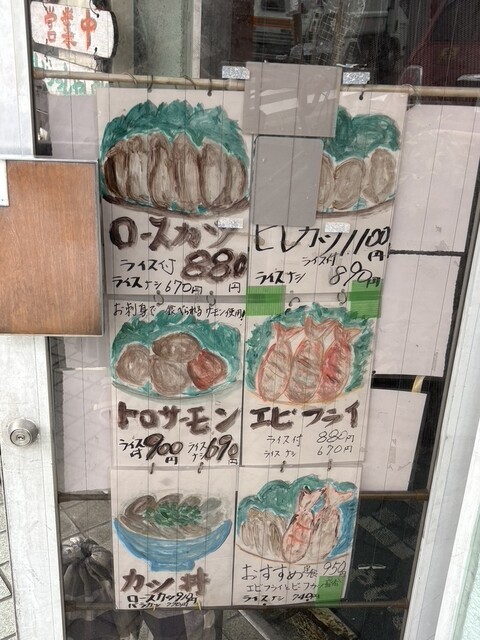 営業中
ロースカツ
ライス付 880円
ライスナシ 670円
ヒレカツ 1100円
ライス付
ライスナシ 890円
お刺身で 食べられるサーモン使用
トロサーモン
ライス付 900円 ライスナシ 690円
エビフライ
ライス付 880円
ライスナシ 670円
カツ丼
ロースカツ
おすすめ 950
ライスナシ 740円